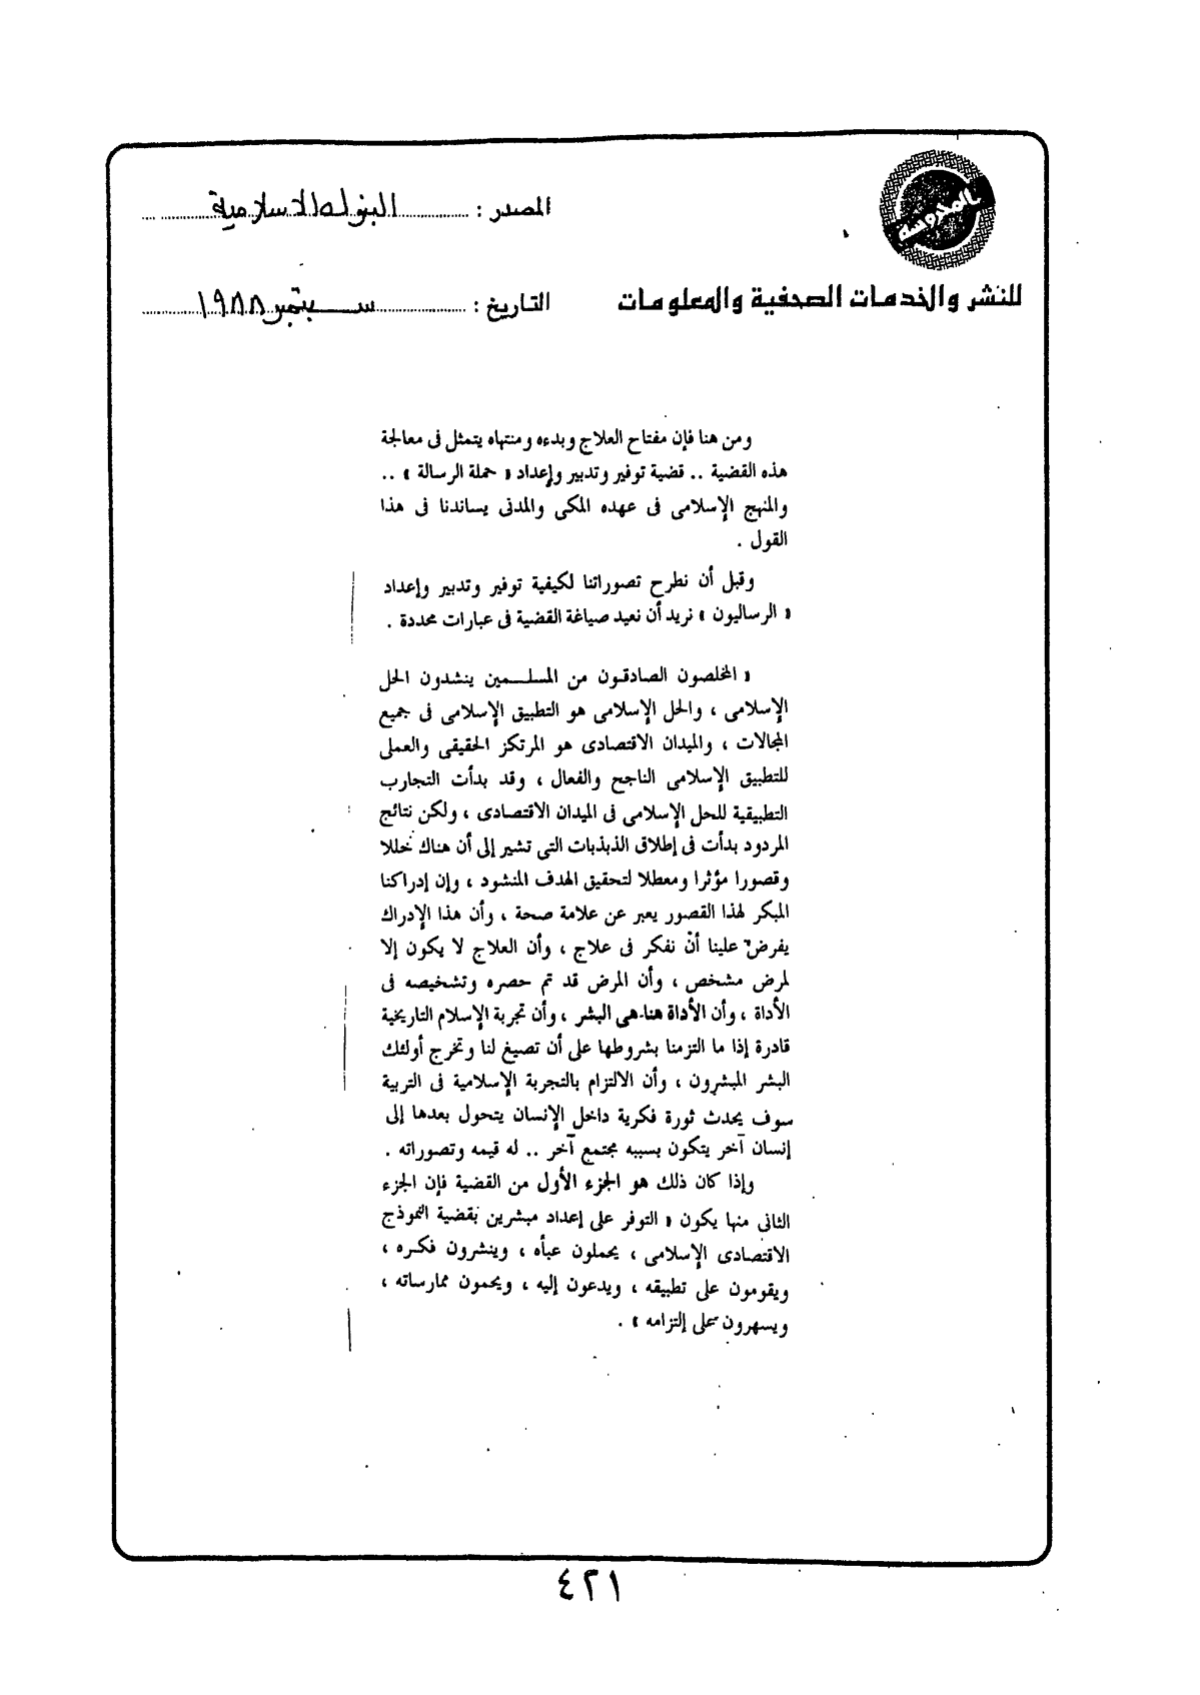 المحروسة
المصدر : البنوك الاسلامية
للنشر والخدمات الصحفية والمعلومات
التاريخ : سبتمبر ١٩٨٨
ومن هنا فإن مفتاح العلاج وبدءه ومنتهاه يتمثل فى معالجة
هذه القضية .. قضية توفير وتدبير وإعداد « حملة الرسالة » ..
والمنهج الإسلامى فى عهده المكى والمدنى يساندنا فى هذا
القول .
وقبل أن نطرح تصوراتنا لكيفية توفير وتدبير وإعداد
« الرساليون » نريد أن نعيد صياغة القضية فى عبارات محددة .
« المخلصون الصادقون من المسلمين ينشدون الحل
الإسلامى ، والحل الإسلامى هو التطبيق الإسلامى فى جميع
المجالات ، والميدان الاقتصادى هو المرتكز الحقيقى والعملى
للتطبيق الإسلامى الناجح والفعال ، وقد بدأت التجارب
التطبيقية للحل الإسلامى فى الميدان الاقتصادى ، ولكن نتائج
المردود بدأت فى إطلاق الذبذبات التى تشير إلى أن هناك خللا
وقصورا مؤثرا ومعطلا لتحقيق الهدف المنشود ، وإن إدراكنا
المبكر لهذا القصور يعبر عن علامة صحة ، وأن هذا الإدراك
يفرض علينا أن نفكر فى علاج ، وأن العلاج لا يكون إلا
لمرض مشخص ، وأن المرض قد تم حصره وتشخيصه فى
الأداة ، وأن الأداة هنا هى البشر ، وأن تجربة الإسلام التاريخية
قادرة إذا ما التزمنا بشروطها على أن تصيغ لنا وتخرج أولئك
البشر المبشرون ، وأن الالتزام بالتجربة الإسلامية فى التربية
سوف يحدث ثورة فكرية داخل الإنسان يتحول بعدها إلى
إنسان آخر يتكون بسببه مجتمع آخر .. له قيمه وتصوراته .
وإذا كان ذلك هو الجزء الأول من القضية فإن الجزء
الثانى منها يكون « التوفر على إعداد مبشرين بقضية النموذج
الاقتصادى الإسلامى ، يحملون عبأه ، وينشرون فكره ،
ويقومون على تطبيقه ، ويدعون إليه ، ويحمون ممارساته ،
ويسهرون على إلتزامه » .
٤٢١